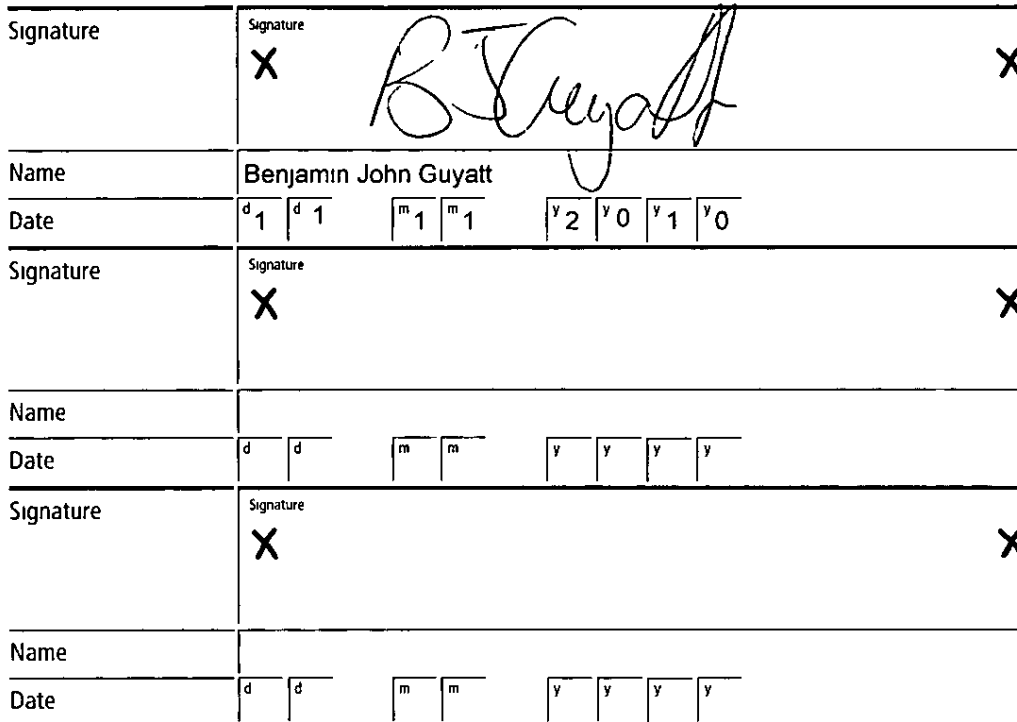 Signature
Signature
X B J Guyatt X
Name Benjamin John Guyatt
Date d 1 d 1 m 1 m 1 y 2 y 0 y 1 y 0
Signature
Signature
X X
Name
Date d d m m y y y y
Signature
Signature
X X
Name
Date d d m m y y y y